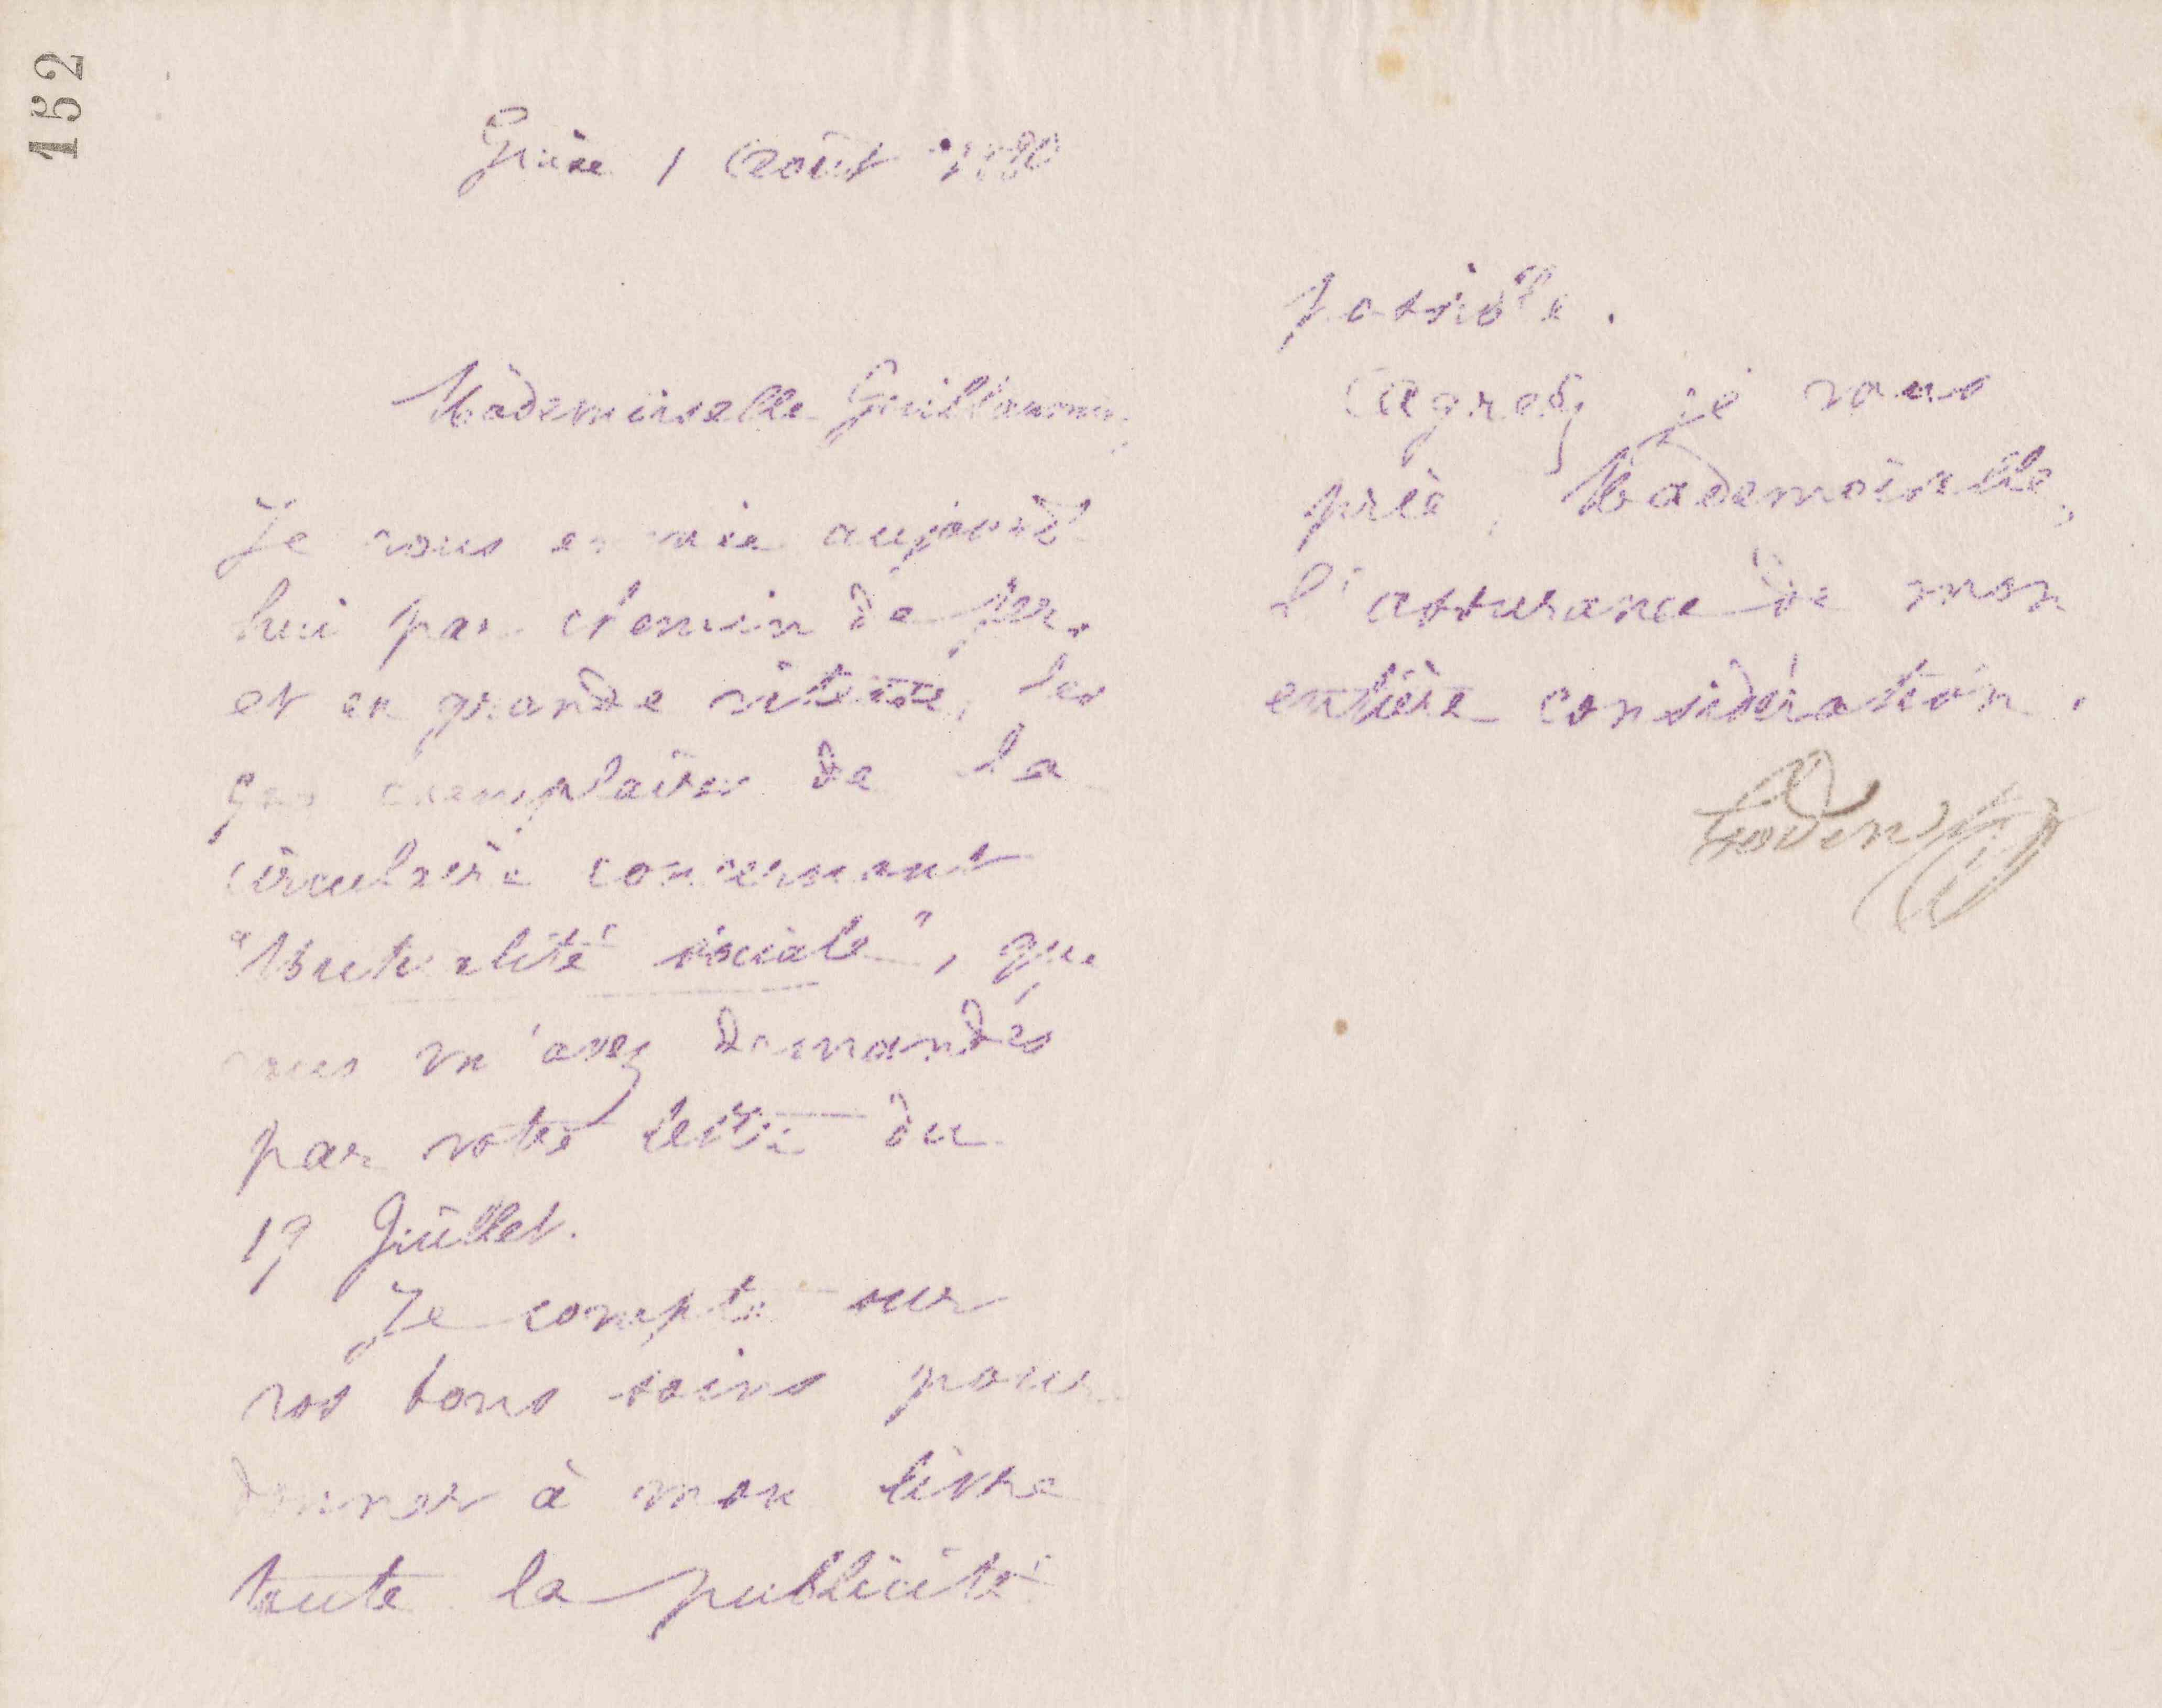 152
Guise 1 Août 1880
Mademoiselle Guillaumin,
Je vous envoie aujourd'
hui par chemin de fer,
et en grande vitesse, les
exemplaires de la
circulaire concernant
"Mutualité sociale", que
vous m'avez demandés
par votre lettre du
19 Juillet.
Je compte sur
vos bons soins pour
donner à mon livre
toute la publicité
possible.
Agréez je vous
prie, Mademoiselle,
l'assurance de mon
entière considération.
Godin